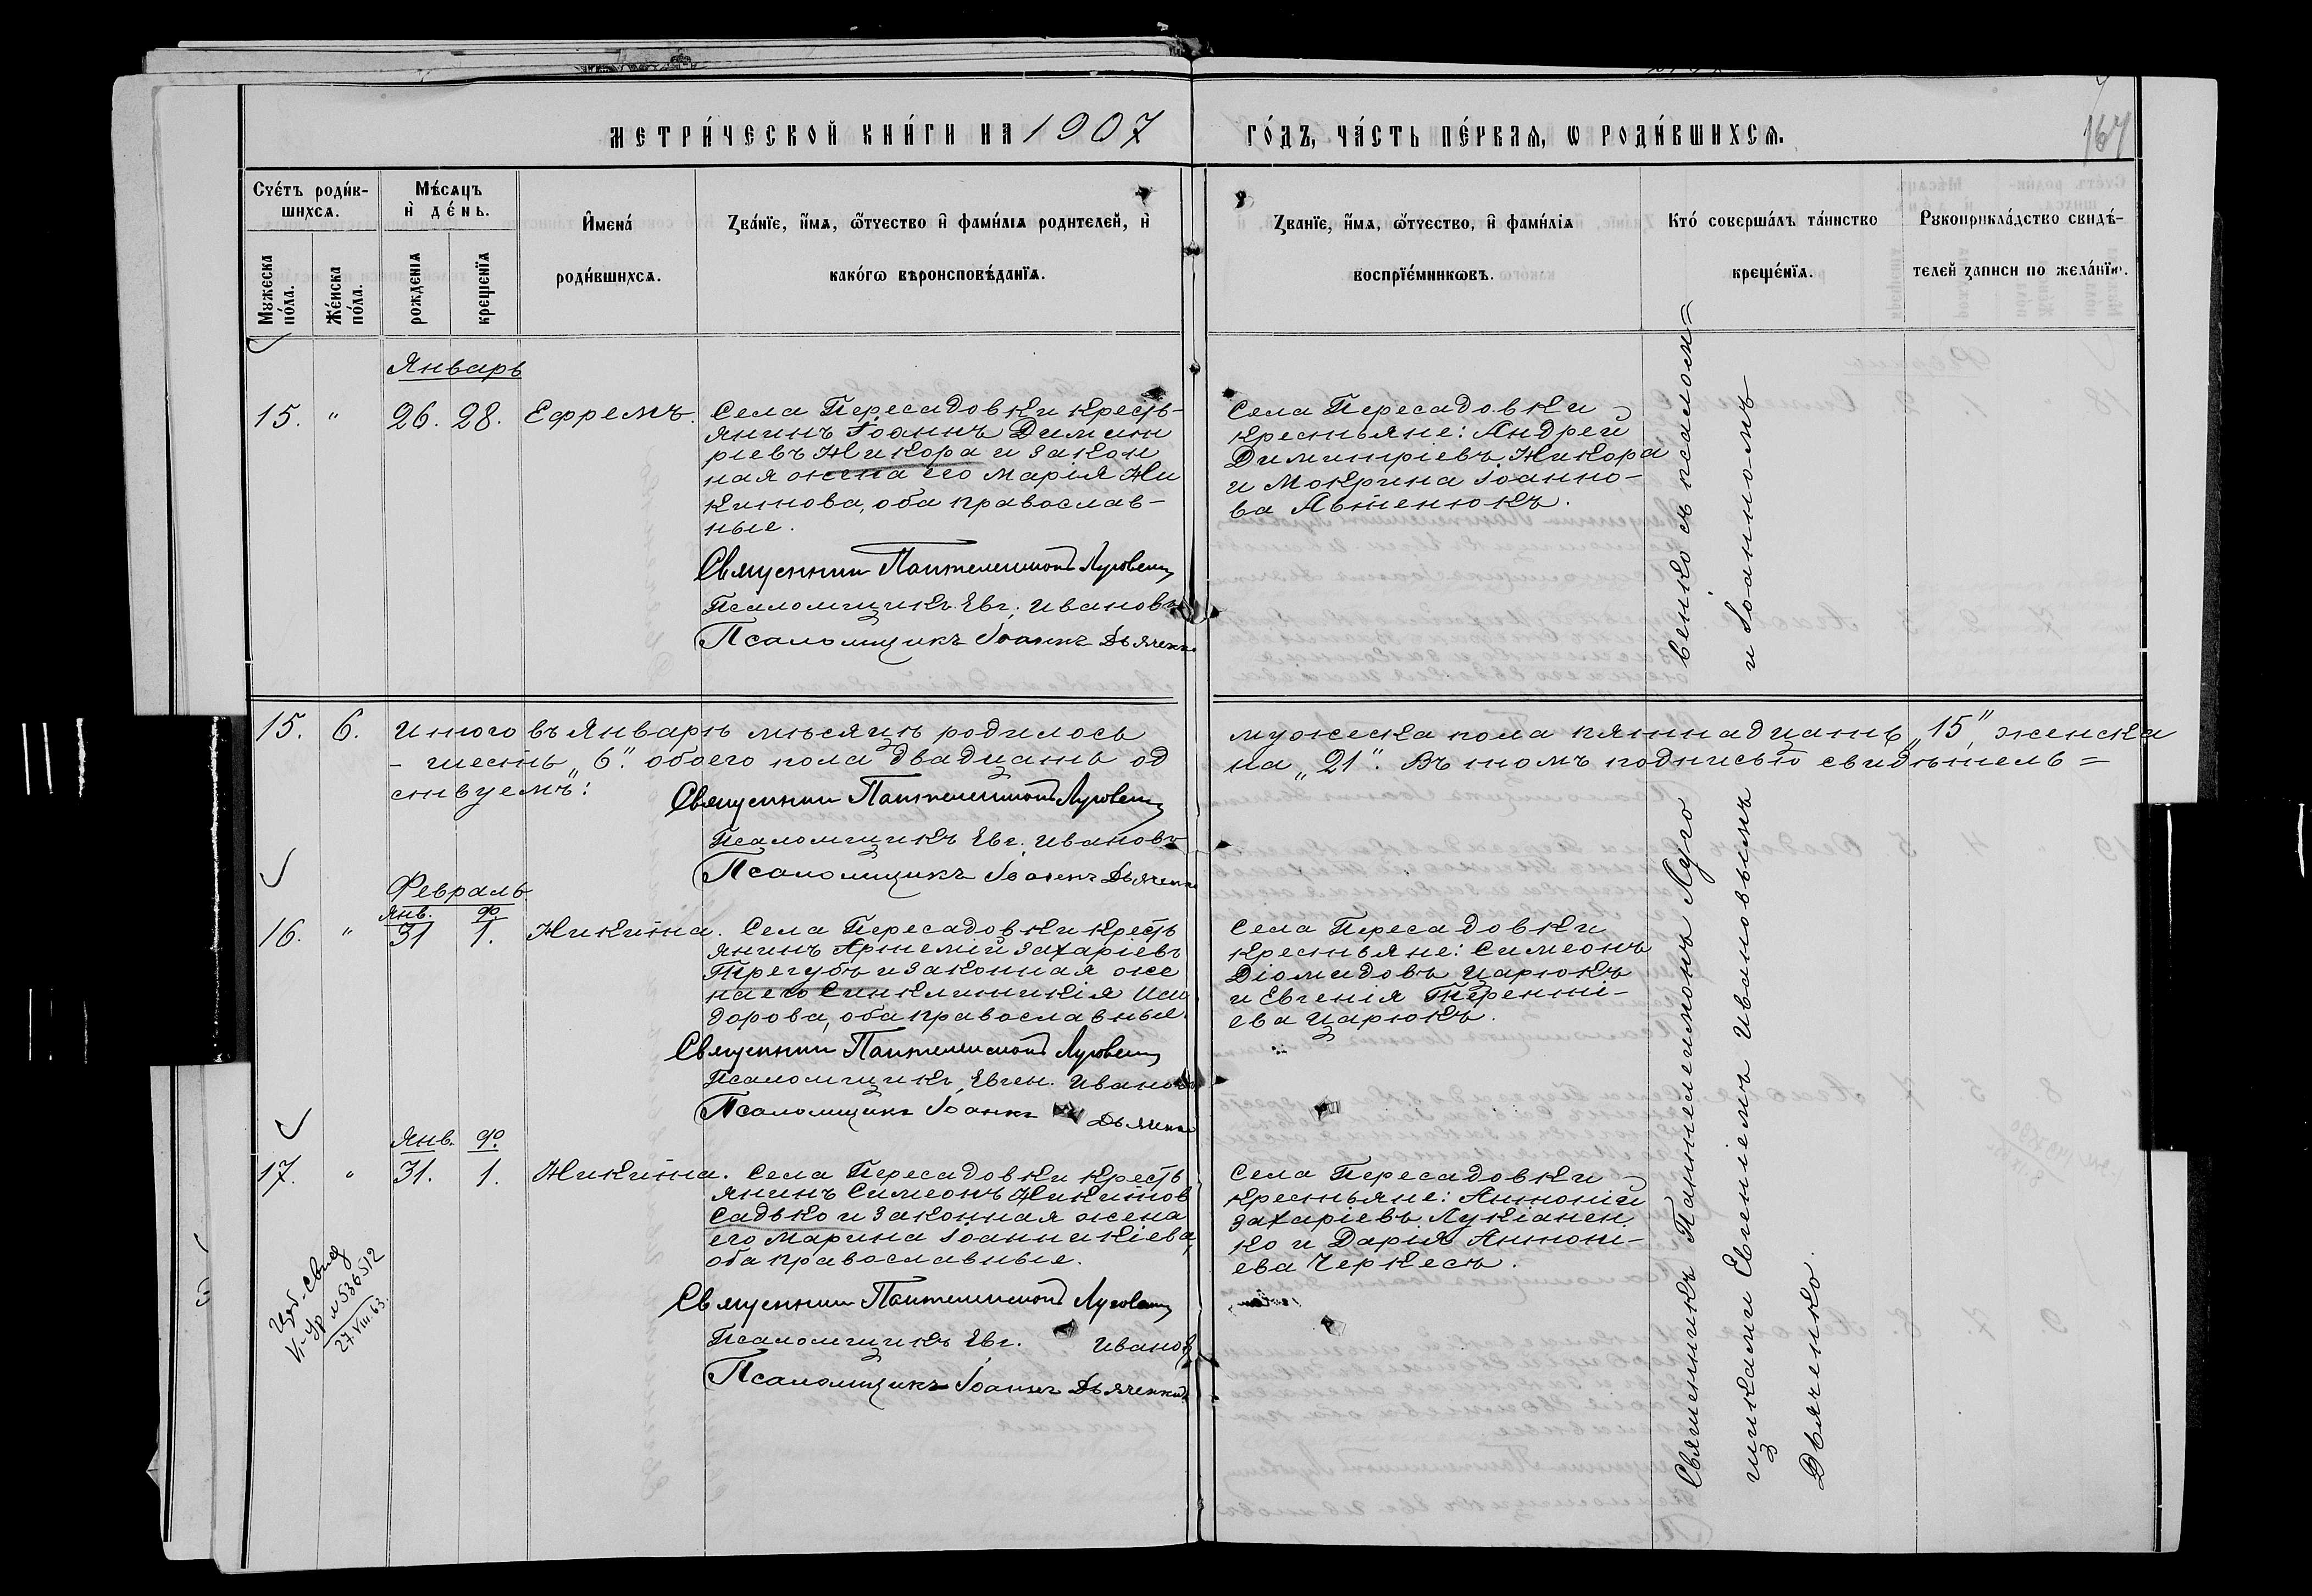 МЕТРИ́ЧЕСКОЙ КНИ́ГИ НА 1907
ГО́ДЪ, ЧА́СТЬ ПЕ́РВАѦ, Ѡ РОДИ́ВШИХСѦ.
167
Сче́тъ роди́в-
шихсѧ.
Мужеска по́ла.
Же́нска по́ла.
Мѣ́сѧцъ
и҆ де́нь.
рожденїѧ
креще́нїѧ
И҆мена́
роди́вшихсѧ.
Зва́нїе, и҆́мѧ, ѻ҆́тчество и҆ фами́лїѧ родителей, и҆
како́гѡ вѣроисповѣ́данїѧ.
Зва́нїе, и҆́мѧ, ѻ҆́тчество, и҆ фами́лїѧ
воспрїе́мникѡвъ.
Кто́ соверша́лъ та́инство
креще́нїѧ.
Рукоприкла́дство свидѣ́-
телей записи по жела́нїю.
Январь
15. " 26. 28. Ефремъ.
Села Пересадовки кресть-
янинъ Іоаннъ Димит
ріевъ Жикора и закон
ная жена его Марія Ни
китова, оба православ-
ные.
Священник Пантелеимонъ Луговенко
Псаломщикъ Евг. Ивановъ
Псаломщикъ Іоаннъ Дьяченко
Села Пересадовки
крестьяне: Андрей
Димитріевъ Жикора
и Мокрина Іоанно-
ва Автенюкъ.
15. 6. Итого въ Январѣ мѣсяцѣ родилось
мужеска пола пятнадцать „15", женска
- шесть „6". обоего пола двадцать од
на „21". Въ томъ подписью свидѣтель=
ствуемъ:
Священник Пантелеимонъ Луговенко
Псаломщикъ Евг. Ивановъ
Псаломщикъ Іоаннъ Дьяченко
Февраль
Янв. Ф.
16. " 31 1. Никита.
Села Пересадовки кресть
янинъ Артемій Захаріевъ
Перегубъ и законная же
на его Синклитикія Иси
дорова, оба православные.
Священник Пантелеимонъ Луговенко
Псаломщикъ Евген. Ивановъ
Псаломщикъ Іоаннъ Дьяченко
Села Пересадовки
крестьяне: Симеонъ
Діомидовъ Царюкъ
и Евгенія Теренті-
ева Царюкъ.
Янв. Ф.
17. " 31. 1. Никита.
Села Пересадовки кресть
янинъ Симеонъ Никитов
Садько и законная жена
его Марина Іоанникіева,
оба православные.
Священник Пантелеимонъ Луговенко
Псаломщикъ Евг. Иванов
Псаломщикъ Іоаннъ Дьяченко
Села Пересадовки
крестьяне: Антоній
Захаріевъ Лукіанен
ко и Дарія Антоні-
ева Черкесъ.
№ 536512
27.VIII.63.
Священникъ Пантелеимонъ Луго
венко съ псалом=
щиками Евгеніемъ Ивановымъ
и Іоанномъ
Дьяченко.